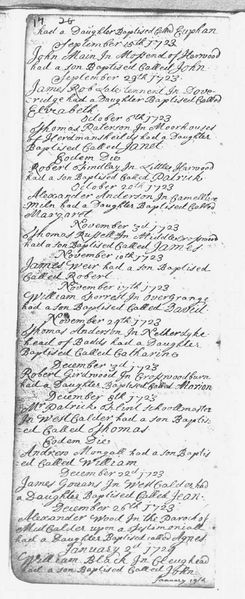 had a Daughter Baptised Called Euphan
September 15th 1723
John Main In Mosend of Harwood
had a son Baptised Called John
September 29th 1723
James Rob Late tennent In Dove
ridge had a Daughter Baptised Called
Elizabeth
October 6th 1723
Thomas Paterson In Moorhouses
of had a Daughter
Baptised Called Janet
Eodem Die
Robert Shindlay In Little Harwood
had a son Baptised Called Patrick
October 20th 1723
Alexander Anderson In
Miln had a Daughter Baptised Called
Margaret
November 3d 1723
Thomas Russell In
had a son Baptised Called James
November 10th 1723
James Weir had a son Baptised
Called Robert
November 17th 1723
William Forrest In overGrange
had a son Baptised Called David
November 29th 1723
Thomas Anderson In Netherdyke
head of Badds had a Daughter
Baptised Called Catharine
December 3d 1723
Robert Girdwood In Crosswoodbarn
had a Daughter Baptised Called Marion
December 8th 1723
Mr Patrick schoolmaster
In West Calder had a son Baptis
ed Called Thomas
Eodem Die
Andrew Mongall had a son Baptis
ed Called William
December 22d 1723
James Gouans In West Calder had
a Daughter Baptised Called Jean
December 26th 1723
Alexander Wood In the Paroch of
Mid Calder upon a Testimonial
had a Daughter Baptised called Agnes
January 2d 1724
William Black In Cleughead
had a son Baptised Called John
January 19th